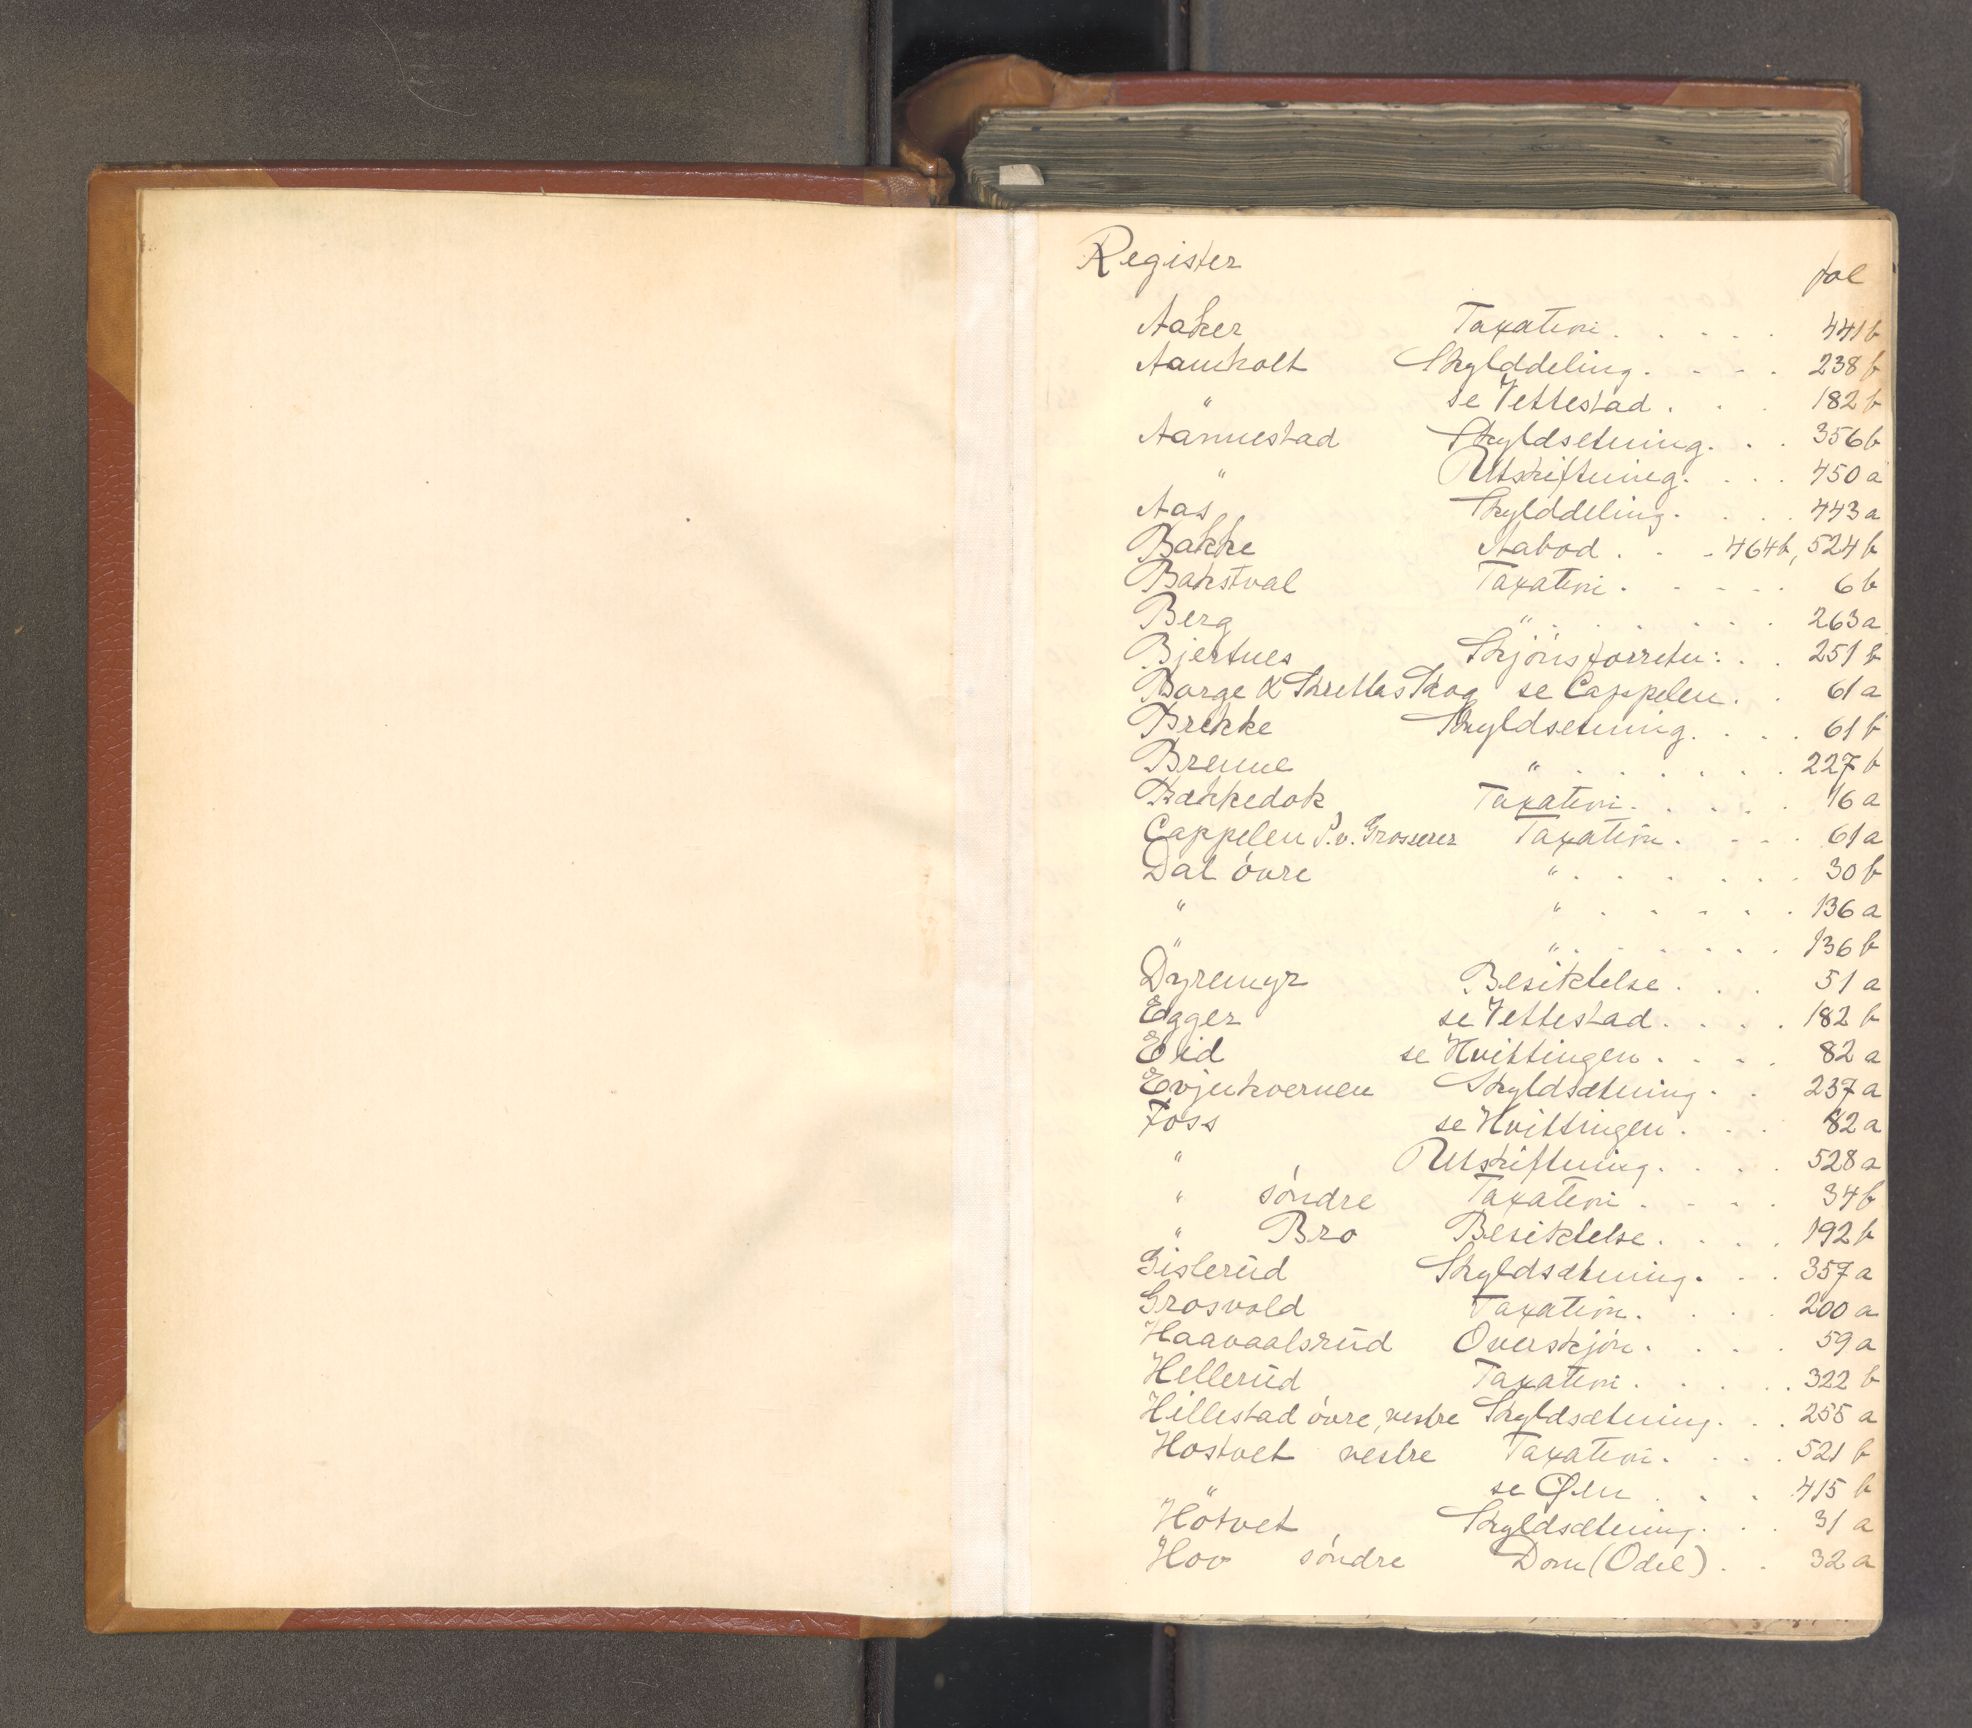 Register
fol
Aaker Taxation . . . . . 441 b
Aamholt Skylddeling . . . . 238 b
" se Vettestad . . . 182 b
Aannestad Skyldsetning . . . 356 b
" Utskiftning . . . . 450 a
Aas Skylddeling . . . . 443 a
Bakke Aabod . . . 464 b, 524 b
Bakstval Taxation . . . . . 6 b
Berg " . . . . . . . 263 a
Bjertnes Skjönsforretn: . . 251 b
Borge & Skrettas Skog se Cappelen . . 61 a
Brekke Skyldsetning . . . . 61 b
Brenne " . . . . . . . 227 b
Bækkedok Taxation . . . . . 16 a
Cappelen P.v. Grosserer Taxation . . . . 61 a
Dal övre " . . . . . . . 30 b
" " . . . . . . 136 a
" " . . . . . . . 136 b
Dyremyr Besiktelse . . . 51 a
Egger se Vettestad . . . . 182 b
Eid se Hvittingen . . . . 82 a
Evjukvernen Skyldsætning . . 237 a
Foss se Hvittingen . . . 82 a
" Utskiftning . . . . 528 a
" söndre Taxation . . . . 34 b
" Bro Besiktelse . . . . 192 b
Gislerud Skyldsætning . . . 357 a
Grosvold Taxation . . . . 200 a
Haavaalsrud Overskjön . . . . 59 a
Hellerud Taxation . . . . . 322 b
Hillestad övre, vestre Skyldsætning . . . 255 a
Hostvet vestre Taxation . . . . 521 b
" se Øen . . . 415 b
Hötvet Skyldsætning . . . 31 a
Hov söndre Dom (Odel) . . 32 a